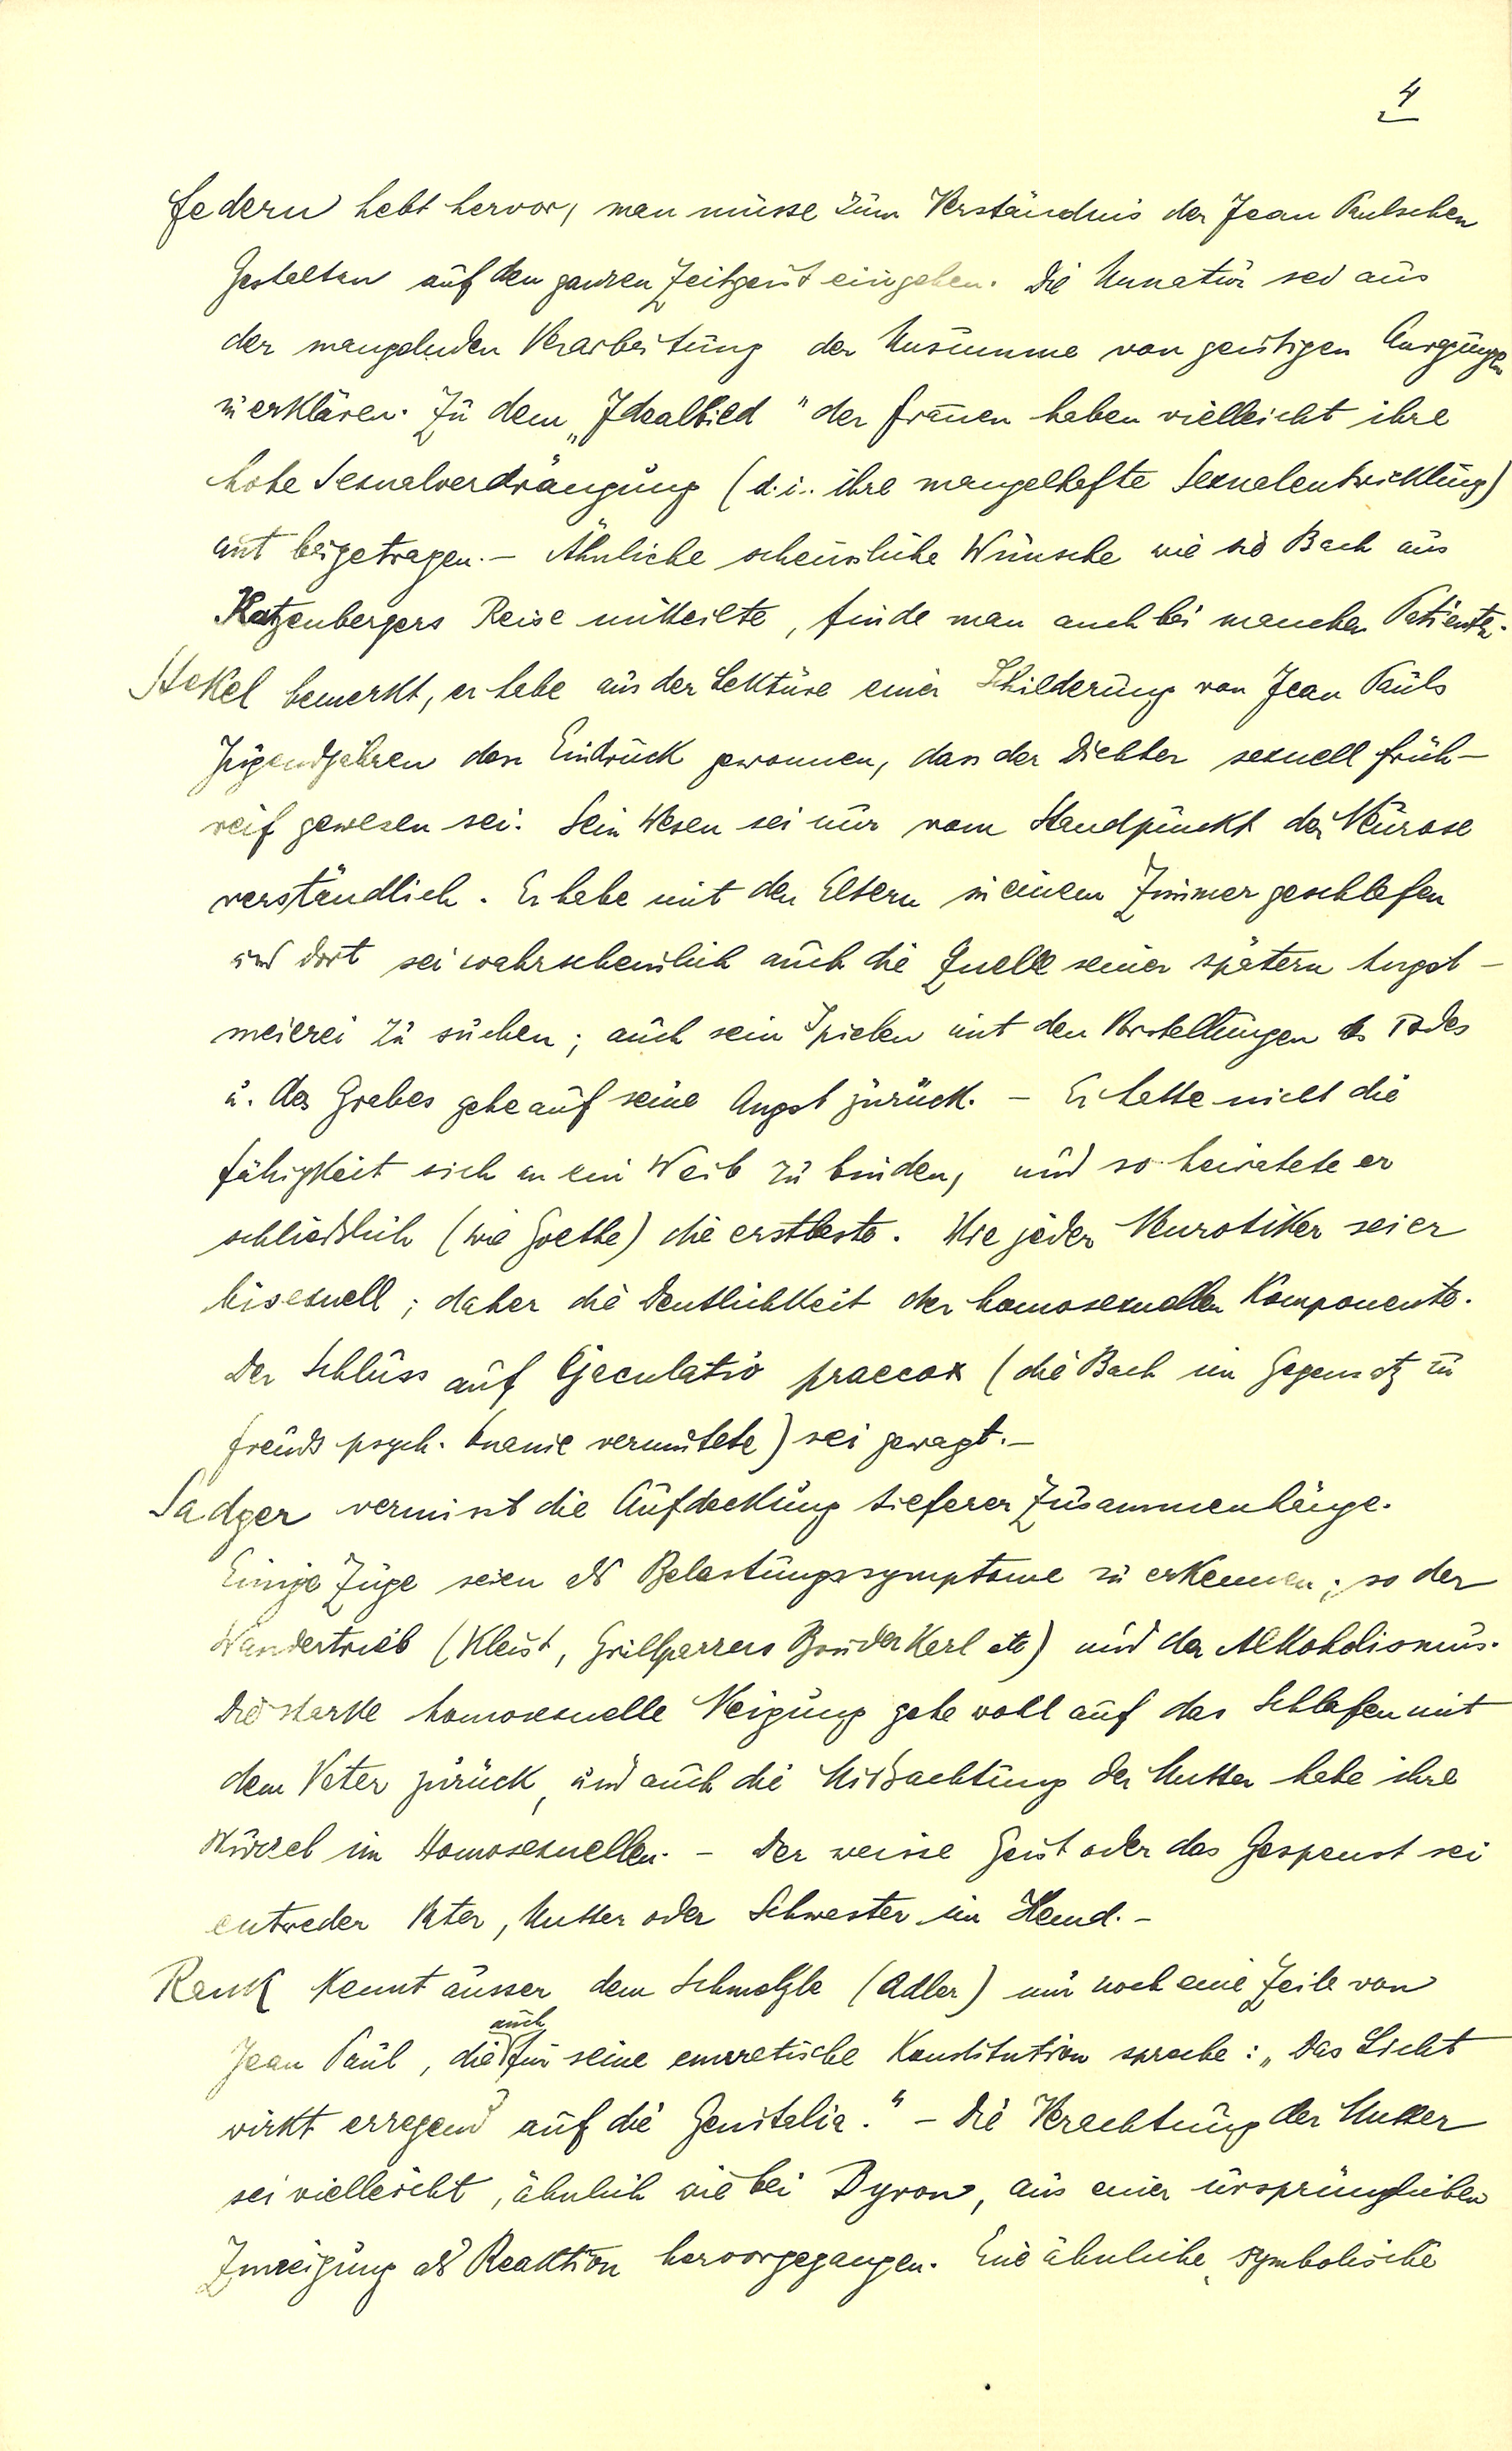 4
Federn hebt hervor, man müsse zum Verständnis der Jean Paulschen
Gestalten auf den ganzen Zeitgeist eingehen. Die Unnatur sei aus
der mangelnden Verarbeitung der Unsumme von geistigen Anregungen
zu erklären. Zu dem „Idealbild" der Frauen haben vielleicht ihre
hohe Sexualverdrängung (d.i. ihre mangelhafte Sexualentwicklung)
mit beigetragen. – Ähnliche scheussliche Wünsche wie sie Bach aus
Katzenbergers Reise mitteilte, finde man auch bei manchen Patienten.
Stekel bemerkt, er habe aus der Lektüre einer Schilderung von Jean Pauls
Jugendjahren den Eindruck gewonnen, dass der Dichter sexuell früh-
reif gewesen sei. Sein Wesen sei nur vom Standpunkt der Neurose
verständlich. Er habe mit den Eltern in einem Zimmer geschlafen
und dort sei wahrscheinlich auch die Quelle seiner spätern Angst-
meierei zu suchen; auch sein Spielen mit den Vorstellungen des Todes
u. des Grabes gehe auf seine Angst zurück. – Er hatte nicht die
Fähigkeit sich an ein Weib zu binden, und so heiratete er
schließlich (wie Goethe) die erstbeste. Wie jeder Neurotiker sei er
bisexuell; daher die Deutlichkeit der homosexuellen Komponente.
Der Schluss auf Ejaculatio praecox (die Bach im Gegensatz zu
Freuds psych. Onanie vermutete) sei gewagt. –
Sadger vermisst die Aufdeckung tieferer Zusammenhänge.
Einige Züge seien als Belastungssymptome zu erkennen; so der
Wandertrieb (Kleist, Grillparzers Bruder Karl etc) und der Alkoholismus.
Die starke homosexuelle Neigung gehe wohl auf das Schlafen mit
dem Vater zurück, und auch die Mißachtung der Mutter habe ihre
Wurzel im Homosexuellen. – Der weisse Geist oder das Gespenst sei
entweder Vater, Mutter oder Schwester im Hemd. –
Rank kennt ausser dem Schmelzle (Adler) nur noch eine Zeile von
Jean Paul, die auch für seine enuretische Konstitution spreche: „Das Licht
wirkt erregend auf die Genitalia." – Die Verachtung der Mutter
sei vielleicht, ähnlich wie bei Byron, aus einer ursprünglichen
Zuneigung als Reaktion hervorgegangen. Eine ähnliche, symbolische